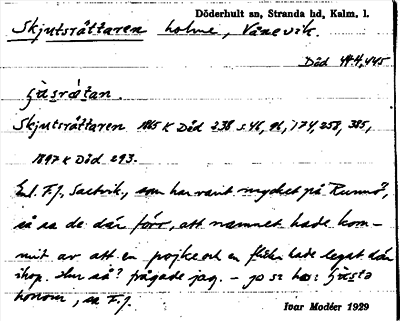 Döderhult sn, Stranda hd, Kalm. l.
Skjutsråttaren holme, Vånevik.
Död 444,445
Skjutsråttaren 1865 K Död 238 s. 46, 96, 174, 258, 385,
1897 K Död 293.
Enl. F.J. Saltvik, som har varit mycket på Runnö,
så sa de där förr, att namnet hade kom-
mit av att en pojke och en flicka hade legat där
ihop. Hur så? frågade jag. – jo
honom, sa F.J.
Ivar Modéer 1929